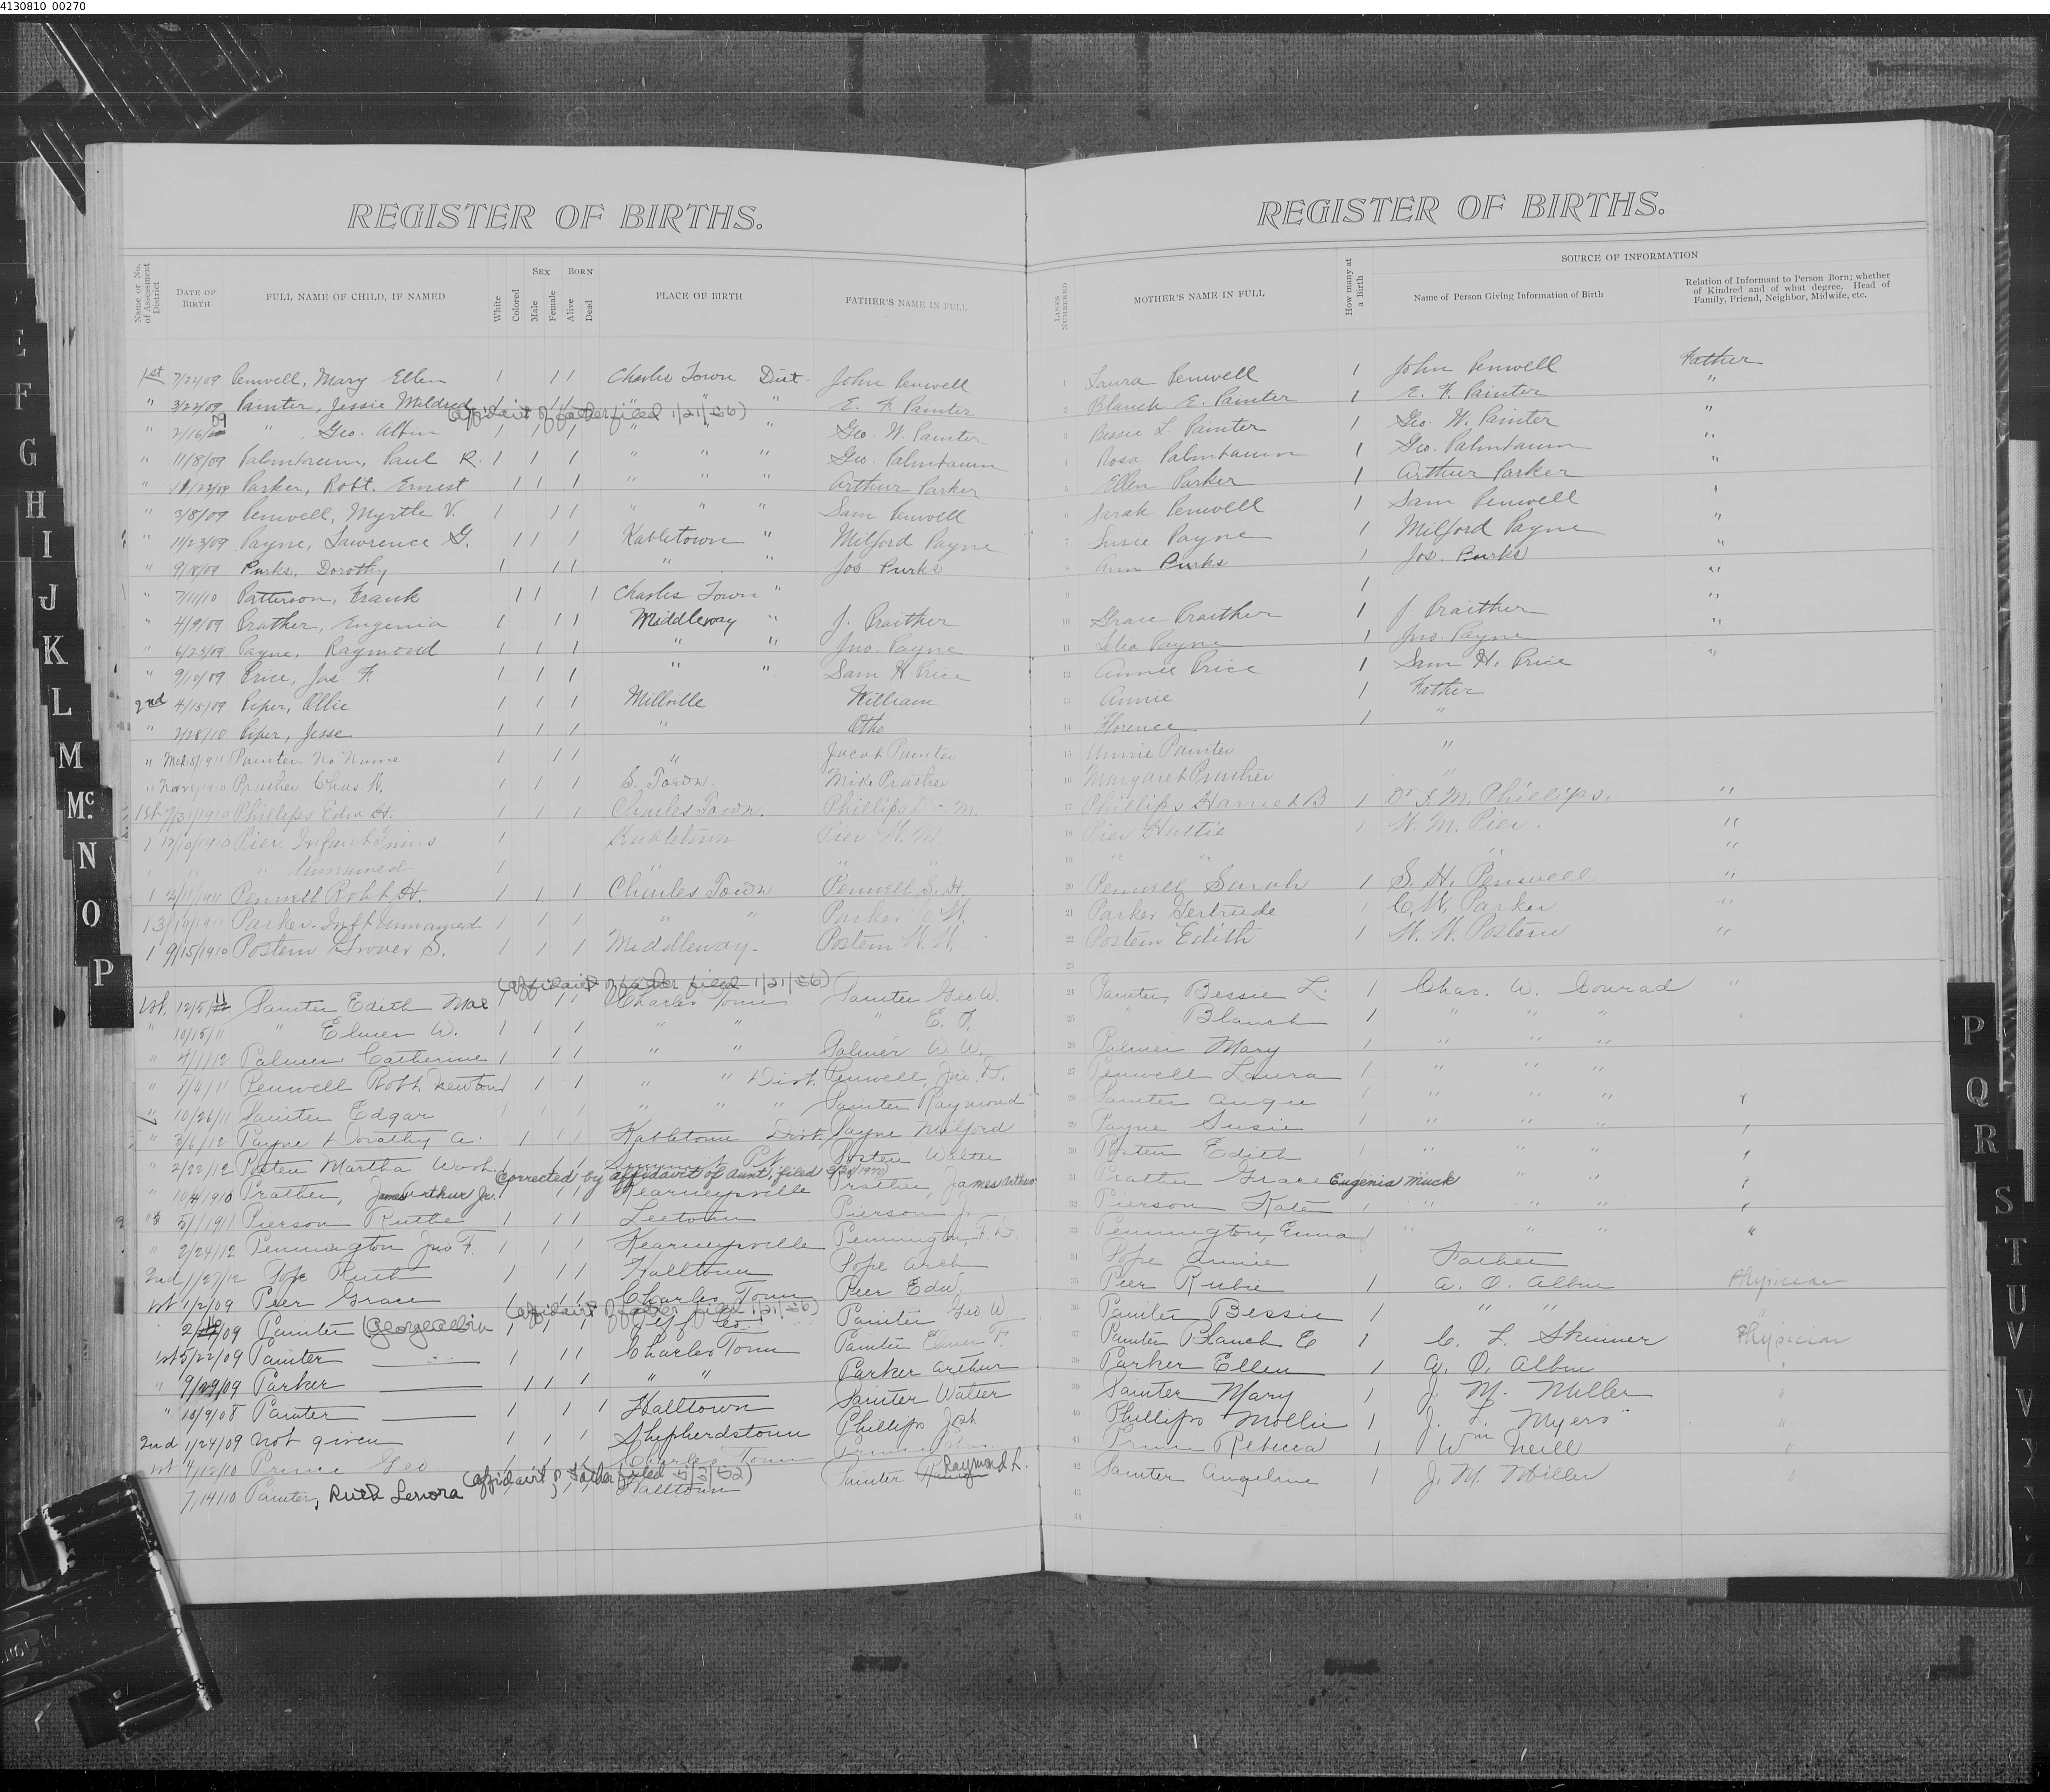 4130810_00270
REGISTER OF BIRTHS.
Name or No. of Assessment District DATE OF BIRTH FULL NAME OF CHILD, IF NAMED White Colored SEX Male Female BORN Alive Dead PLACE OF BIRTH FATHER'S NAME IN FULL
1st 7/22/09 Penwell, Mary Ellen 1 1 1 Charles Town Dist. John Penwell
" 3/22/09 Painter, Jessie Mildred " " " E. F. Painter
(affidavit of father filed 1/21/36)
" 2/16/09 " Geo. Albin 1 1 1 " " " Geo. W. Painter
" 11/8/09 Palmbaum, Paul R. 1 1 1 " " " Geo. Palmbaum
" 11/28/08 Parker, Robt. Ernest 1 1 1 " " " Arthur Parker
" 3/8/09 Penwell, Myrtle V. 1 1 1 " " " Sam Penwell
" 11/23/09 Payne, Lawrence G. 1 1 1 Kabletown " Milford Payne
" 9/18/09 Purks, Dorothy 1 1 1 " " Jos. Purks
" 7/11/10 Patterson, Frank 1 1 1 Charles Town "
" 4/9/09 Prather, Eugenia 1 1 1 Middleway " J. Praither
" 6/25/09 Payne, Raymond 1 1 1 " " Jno. Payne
" 9/10/09 Price, Jas. F. 1 1 1 " " Sam H Price
2nd 4/15/09 Piper, Ollie 1 1 1 Millville William
" 2/28/10 Piper, Jesse 1 1 1 Otho
" Mch 5/1911 Painter No Name 1 1 1 " Jacob Painter
" Nov 1910 Prather Chas. W. 1 1 1 S. Town. Mike Prather
1st 7/31/1910 Phillips Edw H. 1 1 1 Charles Town. Phillips M.
1 12/10/1910 Pier Infant Twins 1 Kabletown Pier W. M.
" " " Unnamed 1 " " "
1 2/11/1911 Penwell Robt H. 1 1 1 Charles Town Penwell S. H.
1 3/19/1911 Parker Inft Unnamed 1 1 1 " " Parker C. W.
1 9/15/1910 Postem Grover S. 1 1 1 Middleway. Postem W. W.
(affidavit of father filed 1/21/36)
1st. 12/5/11 Painter Edith Mae 1 1 1 Charles Town Painter Geo W.
" 10/15/11 " Elmer W. 1 1 1 " " " E. F.
" 4/1/12 Palmer Catherine 1 1 1 " " Palmer W. W.
" 7/4/11 Penwell Robt. Newton 1 1 1 " " Dist. Penwell, Jno. D.
" 10/26/11 Painter Edgar 1 1 1 " " " Painter Raymond
" 3/6/12 Payne Dorathy A. 1 1 1 Kabletown Dist. Payne Milford
" 2/22/12 Posten Martha Wash. Posten Walter
Corrected by affidavit of aunt, filed
" 10/4/1910 Prather, James Arthur Jr. Kearneysville Prather, James Arthur
" 5/1/1911 Pierson Ruthe 1 1 1 Leetown Pierson J.
" 2/24/12 Pennington Jno F. 1 1 1 Kearneysville Pennington, F. D.
2nd 1/27/12 Pope Ruth 1 1 1 Halltown Pope Arch
1st 1/2/09 Peer Grace 1 1 1 Charles Town Peer Edw.
(affidavit of father filed 1/21/36)
2/16/09 Painter George Albin 1 1 1 Jeff Co. Painter Geo W
1st 5/22/09 Painter 1 1 1 Charles Town Painter Elmer F.
" 9/29/09 Parker 1 1 1 " " Parker Arthur
" 10/9/08 Painter 1 1 1 Halltown Painter Walter
2nd 1/24/09 not given 1 1 1 Shepherdstown Phillips Josh
1st 4/12/10 Prince Geo. Charles Town
(affidavit of father filed 5/3/52)
7/14/10 Painter, Ruth Lenora Halltown Painter Raymond L.
REGISTER OF BIRTHS.
LINES NUMBERED MOTHER'S NAME IN FULL How many at a Birth SOURCE OF INFORMATION
Name of Person Giving Information of Birth
Relation of Informant to Person Born; whether of Kindred and of what degree. Head of Family, Friend, Neighbor, Midwife, etc.
1 Laura Penwell 1 John Penwell Father
2 Blanch E. Painter 1 E. F. Painter "
3 Bessie L. Painter 1 Geo. W. Painter "
4 Rosa Palmbaum 1 Geo. Palmbaum "
5 Ellen Parker 1 Arthur Parker "
6 Sarah Penwell 1 Sam Penwell "
7 Susie Payne 1 Milford Payne "
8 Ann Purks 1 Jos. Purks "
9 1 "
10 Grace Praither 1 J. Praither "
11 Payne 1 Jno. Payne "
12 Annie Price 1 Sam H. Price "
13 Annie 1 Father
14 Florence 1 "
15 Annie Painter "
16 Margaret Prather "
17 Phillips Harriet B 1 Dr. Phillips. "
18 Pier Hattie 1 W. M. Pier. "
19 " " " "
20 Penwell Sarah 1 S. H. Penwell "
21 Parker Gertrude 1 C. W. Parker "
22 Postem Edith 1 W. W. Postem "
23
24 Painter, Bessie L. 1 Chas. W. Conrad "
25 " Blanch 1 " " "
26 Palmer Mary 1 " " "
27 Penwell Laura 1 " " "
28 Painter Angie 1 " " " "
29 Payne Susie 1 " " " "
30 Posten Edith 1 " " " "
31 Prather Grace Eugenia Muck " " "
32 Pierson Kate 1 " " " "
33 Pennington, Emma 1 " " " "
34 Pope Annie Father
35 Peer Rubie 1 A. O. Albin Physician
36 Painter Bessie 1 " " "
37 Painter Blanch E 1 C. L. Skinner Physician
38 Parker Ellen 1 A. O. Albin "
39 Painter Mary 1 J. M. Miller "
40 Phillips Mollie 1 J. L. Myers "
41 Rebecca 1 Wm Neill "
42 Painter Angeline 1 J. M. Miller "
43
44
E
F
G
H
I
J
K
L
M
Mc
N
O
P
P
Q
R
S
T
U
V